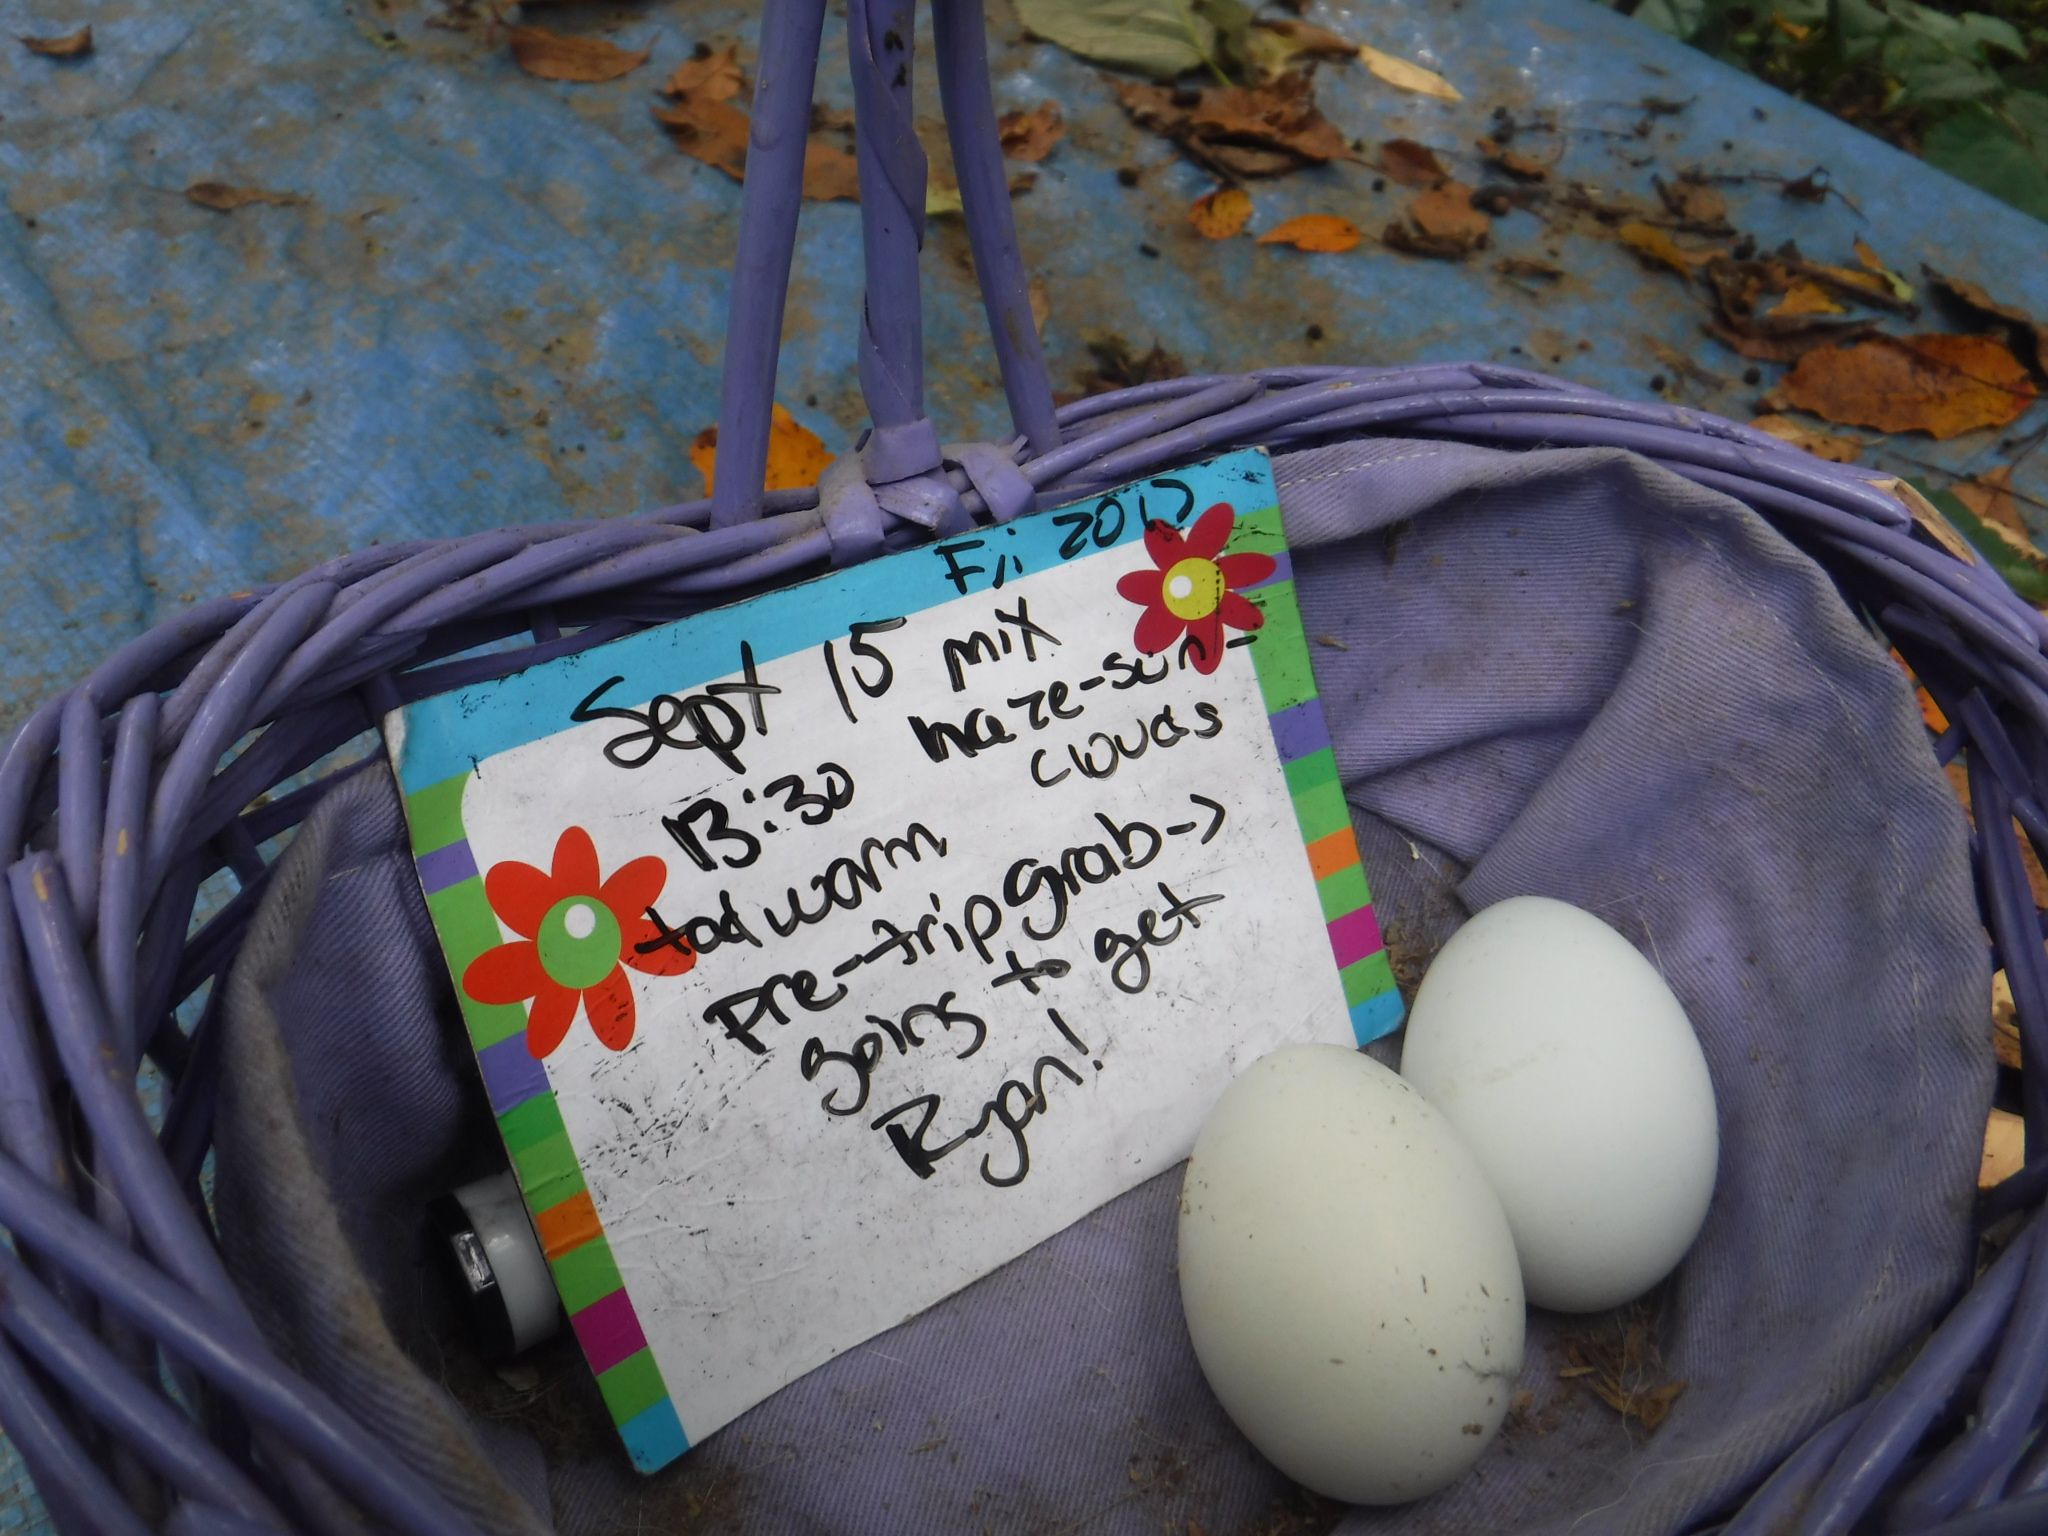 Fri 2017
Sept 15 mix
13:30 haze-sun-
clouds
tad warm
Pre-trip grab->
going to get
Ryan!